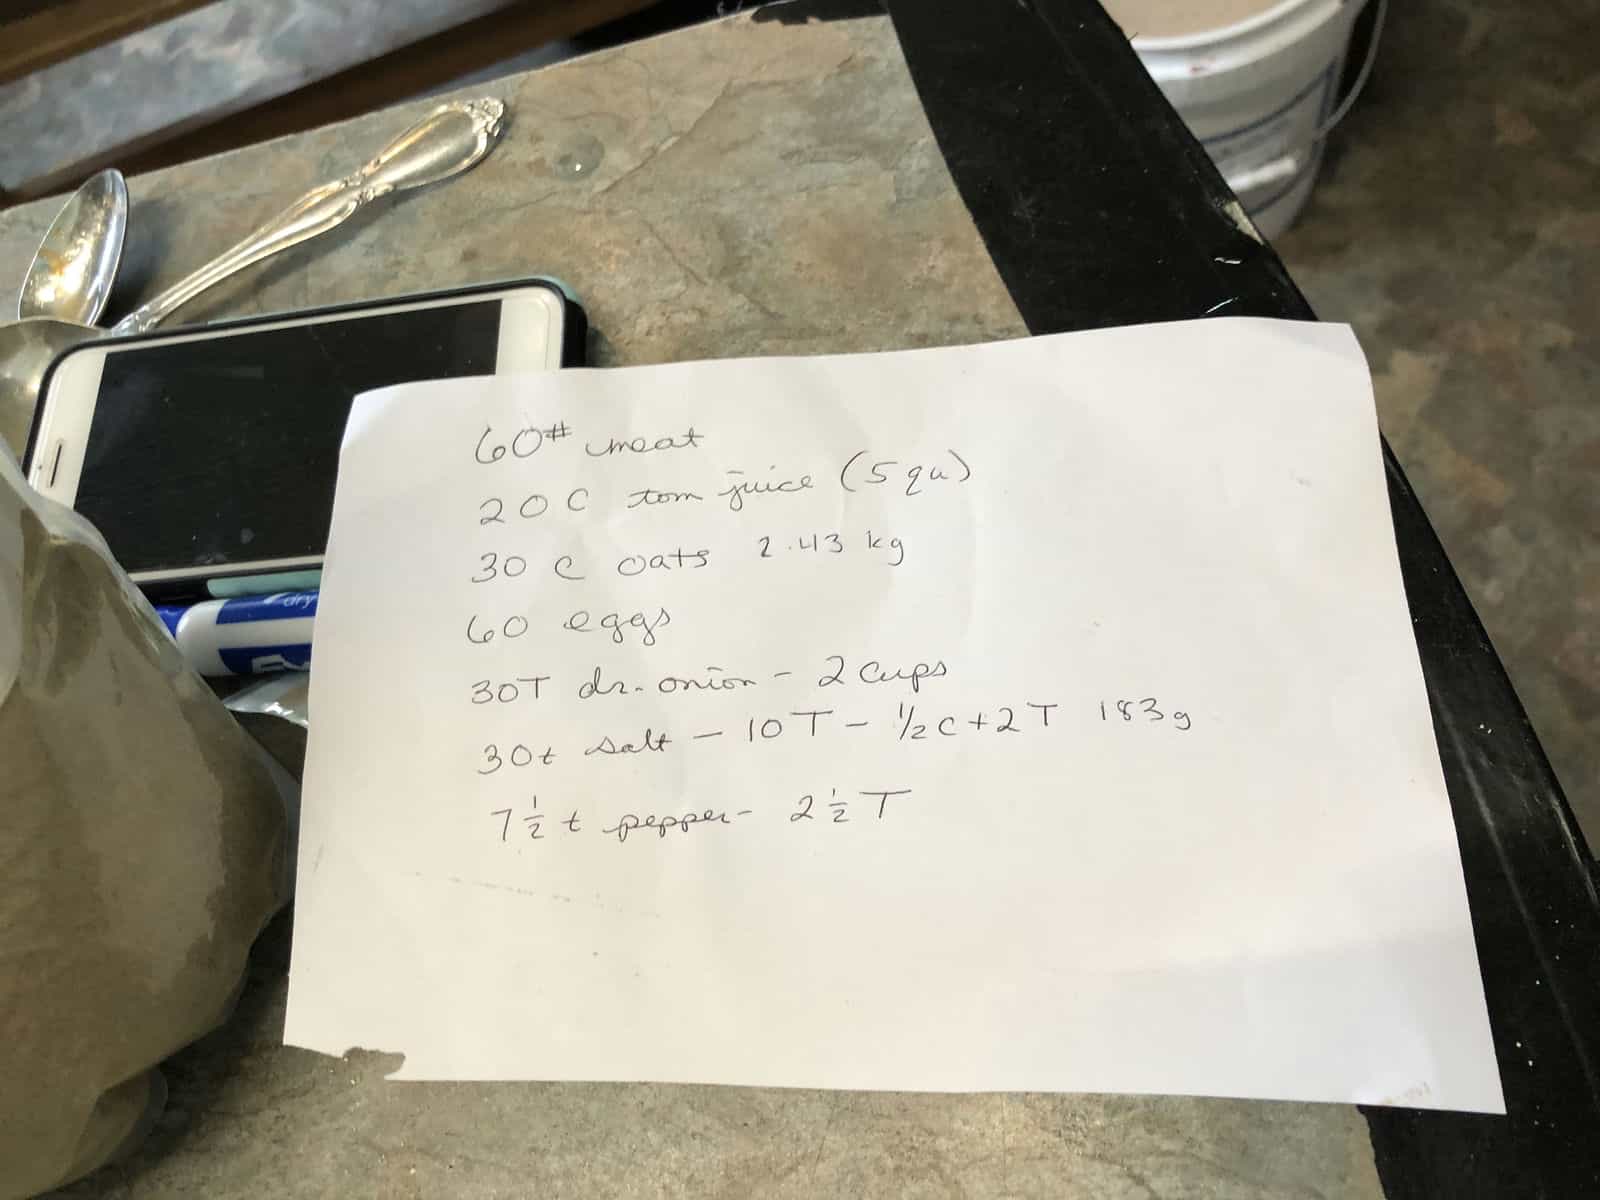 60# meat
20 C tom juice (5 qu)
30 c oats 2.43 kg
60 eggs
30T dr. onion - 2 cups
30t salt - 10 T - 1/2 c + 2 T 183g
7 1/2 t pepper - 2 1/2 T
dry